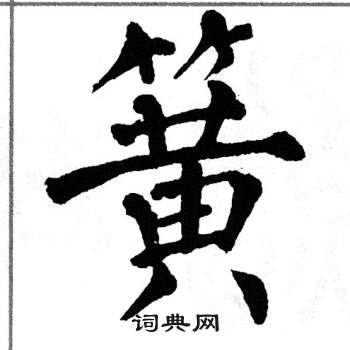 簧
词典网